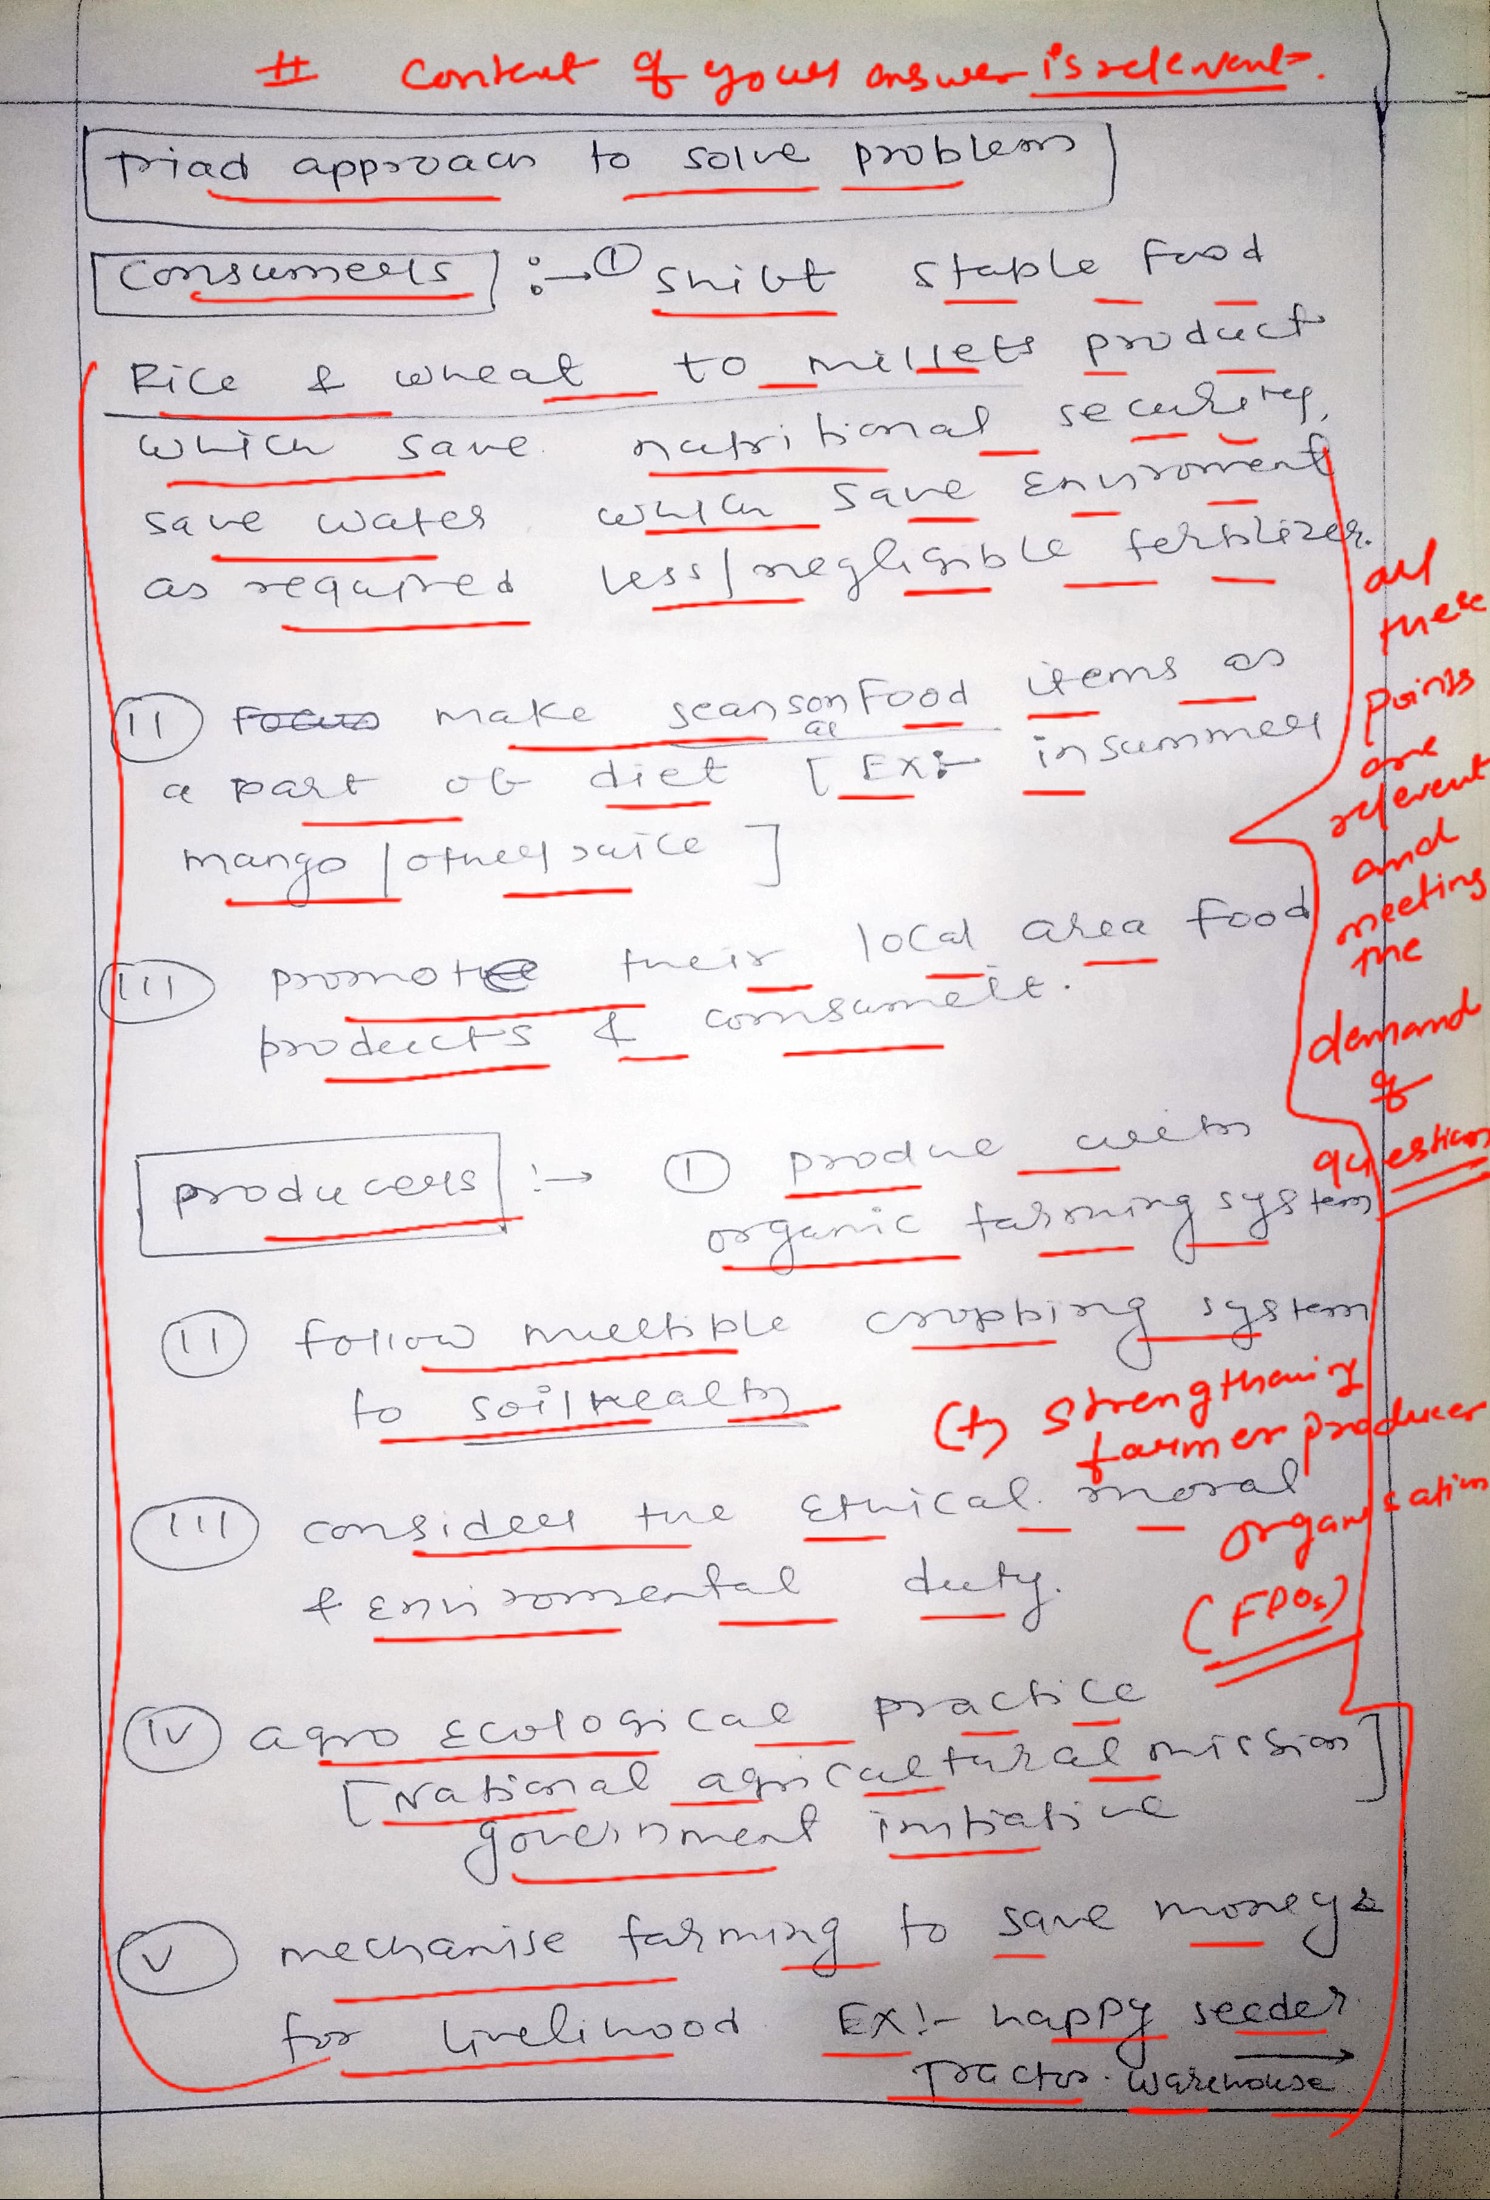 # Content of your answer is relevent.
Triad approach to solve problems
Consumers :→ ① Shift staple Food
Rice & wheat to millets product
which save nutritional security,
save water which save Enviroment
as required less/negligible fertilizer.
(II) Focus make seansonal Food items as
a part of diet [EX:- in summer
mango / other juice]
(III) promote their local area food
products & consume it.
all
these
points
are
relevent
and
meeting
the
demand
of
question
producers :→ ① produce with
organic farming system
(II) follow multiple cropping system
to soil health
(+) Strengthening
farmer producer
organisation
(FPOs)
(III) consider the Ethical moral
& Enviromental duty.
(IV) agro Ecological practice
[National agricultural mission]
government initiative
(V) mechanise farming to save money &
for livelihood EX:- happy seeder
Tractor. warehouse